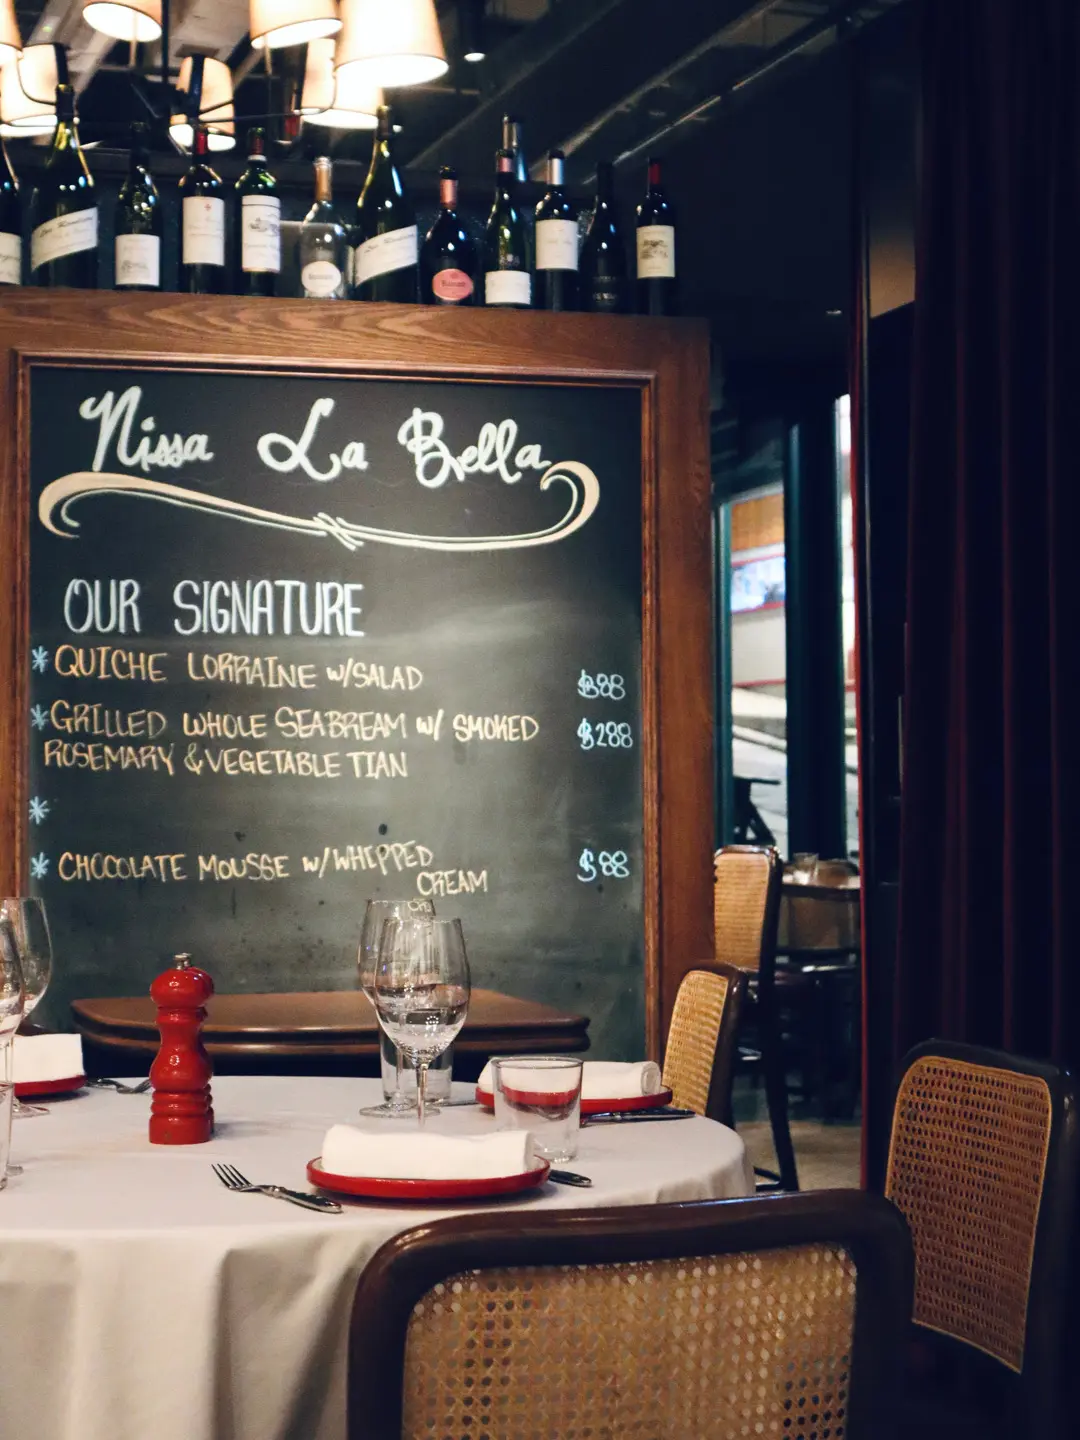 Nissa La Bella
OUR SIGNATURE
* QUICHE LORRAINE w/SALAD $88
* GRILLED WHOLE SEABREAM w/ SMOKED $288
ROSEMARY & VEGETABLE TIAN
*
* CHOCOLATE MOUSSE w/WHIPPED $88
CREAM